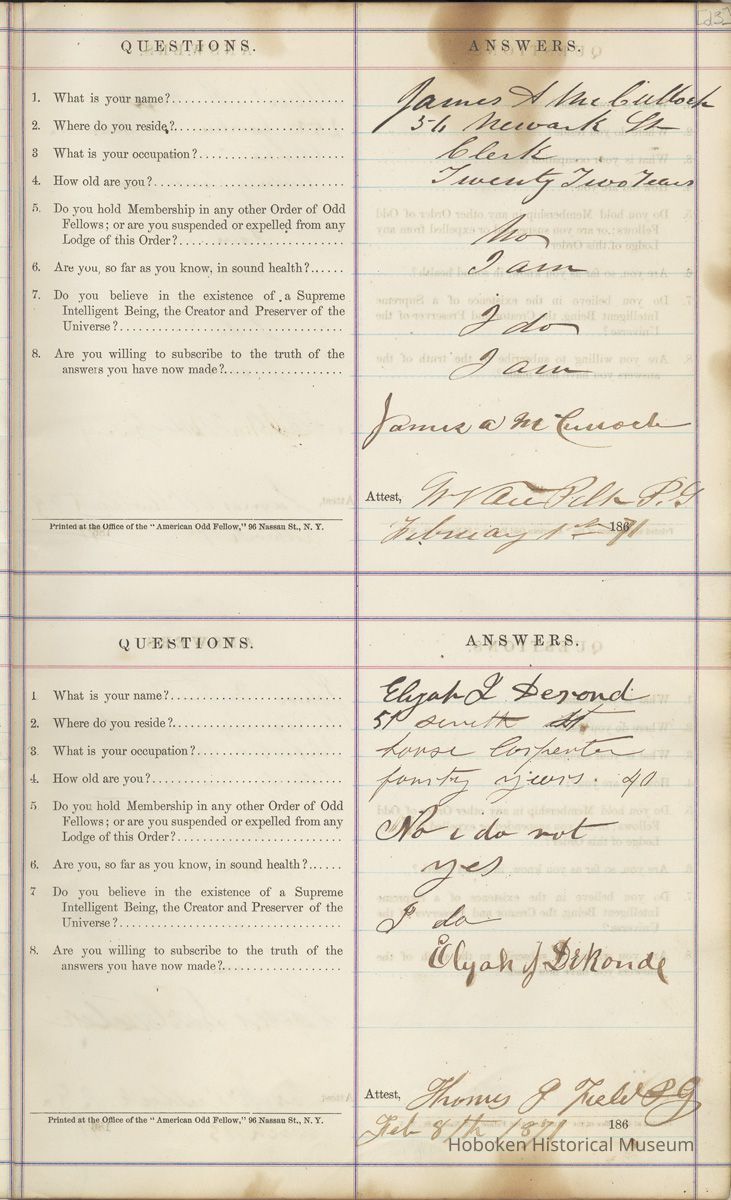 [13]
QUESTIONS. ANSWERS.
1. What is your name? James A McCullock
2. Where do you reside? 56 Newark St
3 What is your occupation? Clerk
4. How old are you? Twenty Two Years
5. Do you hold Membership in any other Order of Odd
Fellows; or are you suspended or expelled from any
Lodge of this Order? No
6. Are you, so far as you know, in sound health? I am
7. Do you believe in the existence of a Supreme
Intelligent Being, the Creator and Preserver of the
Universe? I do
8. Are you willing to subscribe to the truth of the
answers you have now made? I am
James A McCullock
Attest, P. G
Printed at the Office of the "American Odd Fellow," 96 Nassau St., N. Y.
February 1st 1871
QUESTIONS. ANSWERS.
1 What is your name? Elijah J Derond
2. Where do you reside? 51 seventh St
3. What is your occupation? house Carpenter
4. How old are you? fourty years. 40
5 Do you hold Membership in any other Order of Odd
Fellows; or are you suspended or expelled from any
Lodge of this Order? No i do not
6. Are you, so far as you know, in sound health? yes
7 Do you believe in the existence of a Supreme
Intelligent Being, the Creator and Preserver of the
Universe? I do
8. Are you willing to subscribe to the truth of the
answers you have now made?
Elijah J DeRonde
Attest, Thomas P Field P G
Printed at the Office of the "American Odd Fellow," 96 Nassau St., N. Y. 186
Feb 8th 1871
Hoboken Historical Museum